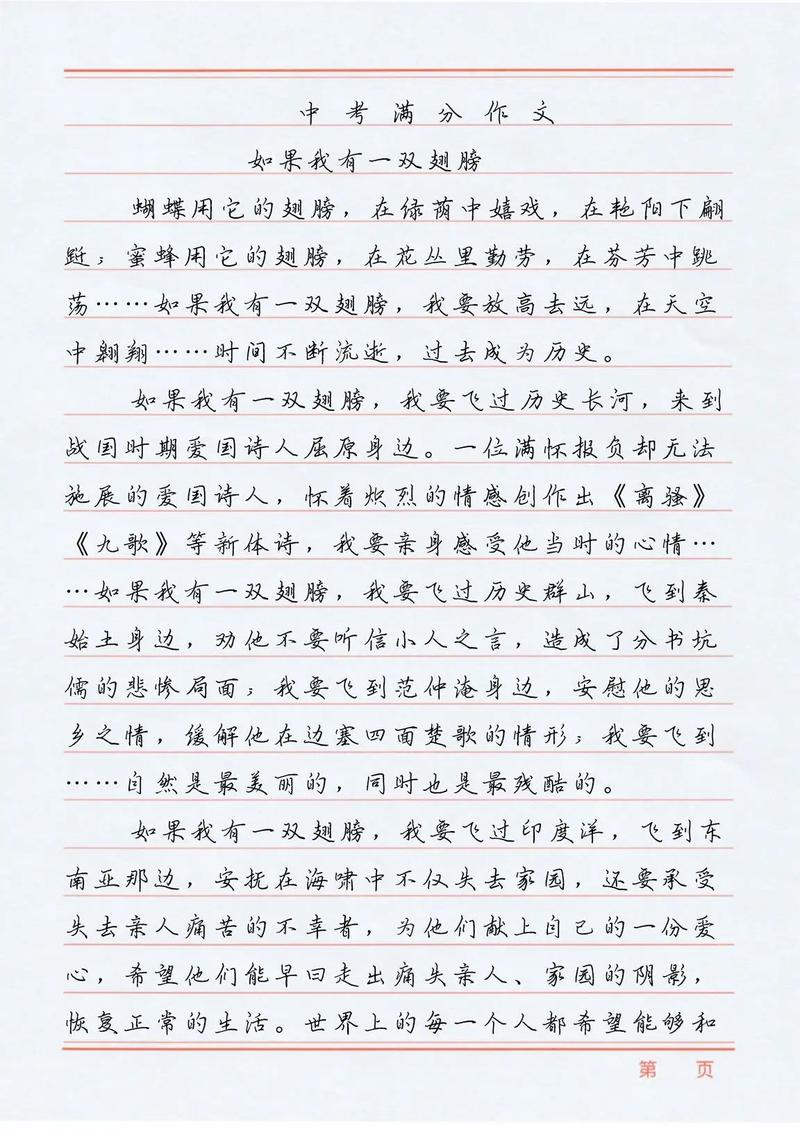 中考满分作文
如果我有一双翅膀
蝴蝶用它的翅膀，在绿荫中嬉戏，在艳阳下翩
跹；蜜蜂用它的翅膀，在花丛里勤劳，在芬芳中跳
荡……如果我有一双翅膀，我要放高去远，在天空
中翱翔……时间不断流逝，过去成为历史。
如果我有一双翅膀，我要飞过历史长河，来到
战国时期爱国诗人屈原身边。一位满怀报负却无法
施展的爱国诗人，怀着炽烈的情感创作出《离骚》
《九歌》等新体诗，我要亲身感受他当时的心情…
…如果我有一双翅膀，我要飞过历史群山，飞到秦
始土身边，劝他不要听信小人之言，造成了分书坑
儒的悲惨局面；我要飞到范仲淹身边，安慰他的思
乡之情，缓解他在边塞四面楚歌的情形；我要飞到
……自然是最美丽的，同时也是最残酷的。
如果我有一双翅膀，我要飞过印度洋，飞到东
南亚那边，安抚在海啸中不仅失去家园，还要承受
失去亲人痛苦的不幸者，为他们献上自己的一份爱
心，希望他们能早曰走出痛失亲人、家园的阴影，
恢复正常的生活。世界上的每一个人都希望能够和
第 页